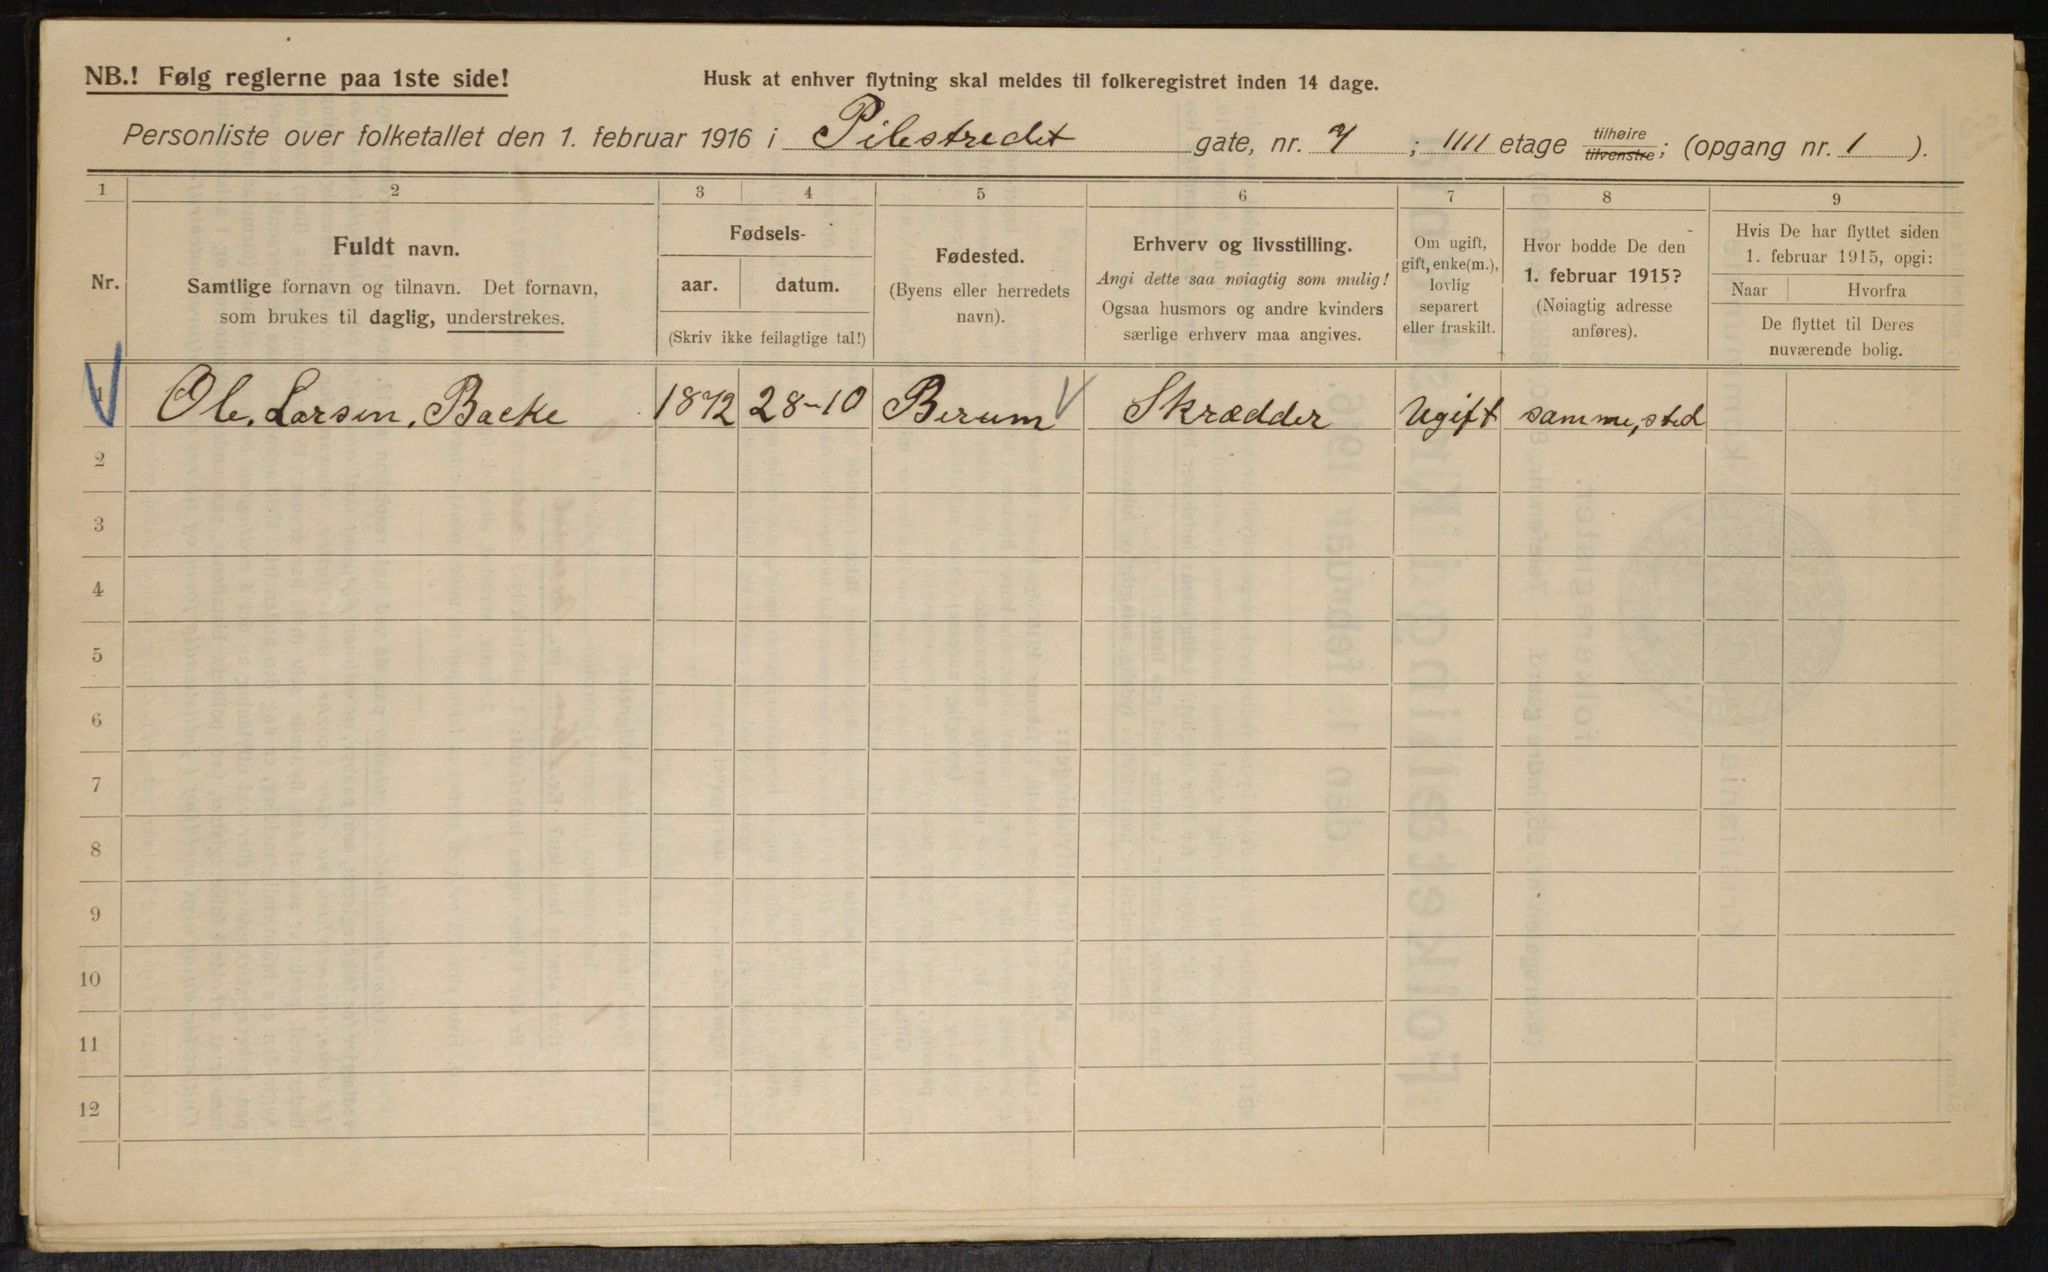 NB.! Følg reglerne paa 1ste side!
Husk at enhver flytning skal meldes til folkeregistret inden 14 dage.
Personliste over folketallet den 1. februar 1916 i Pilestredet gate, nr. 7; 1111 etage tilhøire tilvenstre; (opgang nr. 1).
1 2 3 4 5 6 7 8 9
Nr.
Fuldt navn.
Samtlige fornavn og tilnavn. Det fornavn,
som brukes til daglig, understrekes.
Fødsels-
aar. datum.
(Skriv ikke feilagtige tal!)
Fødested.
(Byens eller herredets
navn).
Erhverv og livsstilling.
Angi dette saa nøiagtig som mulig!
Ogsaa husmors og andre kvinders
særlige erhverv maa angives.
Om ugift,
gift, enke(m.),
lovlig
separert
eller fraskilt.
Hvor bodde De den
1. februar 1915?
(Nøiagtig adresse
anføres).
Hvis De har flyttet siden
1. februar 1915, opgi:
Naar Hvorfra
De flyttet til Deres
nuværende bolig.
1 Ole. Larsen. Backe 1872 28-10 Berum Skrædder Ugift samme, sted
2
3
4
5
6
7
8
9
10
11
12